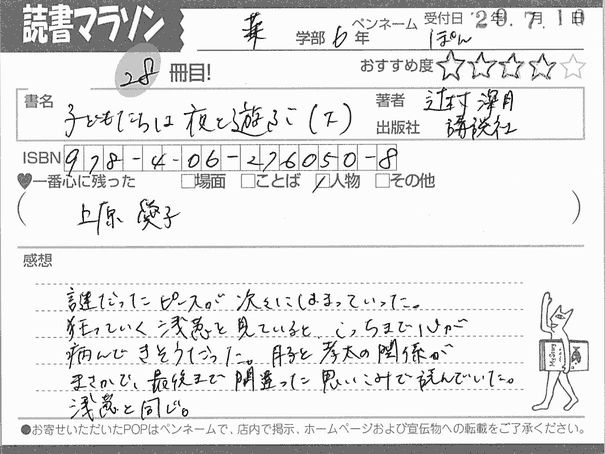 読書マラソン
薬 学部 6 年
ペンネーム ぽん
受付日 '20.7.10
年 月 日
28 冊目!
おすすめ度 ☆☆☆☆☆
書名 子どもたちは 夜と遊ぶ (下)
著者 辻村 深月
出版社 講談社
ISBN 978-4-06-276050-8
♥一番心に残った □場面 □ことば ☑人物 □その他
( 上原 愛子 )
感想
謎だったピースが 次々にはまっていった。
狂っていく 浅葱を見ていると、こっちまで心が
病んできそうだった。月子と孝太の関係が
まさかで、最後まで 間違った 思いこみで 読んでいた。
浅葱と同じ。
●お寄せいただいたPOPはペンネームで、店内で掲示、ホームページおよび宣伝物への転載をご了承ください。